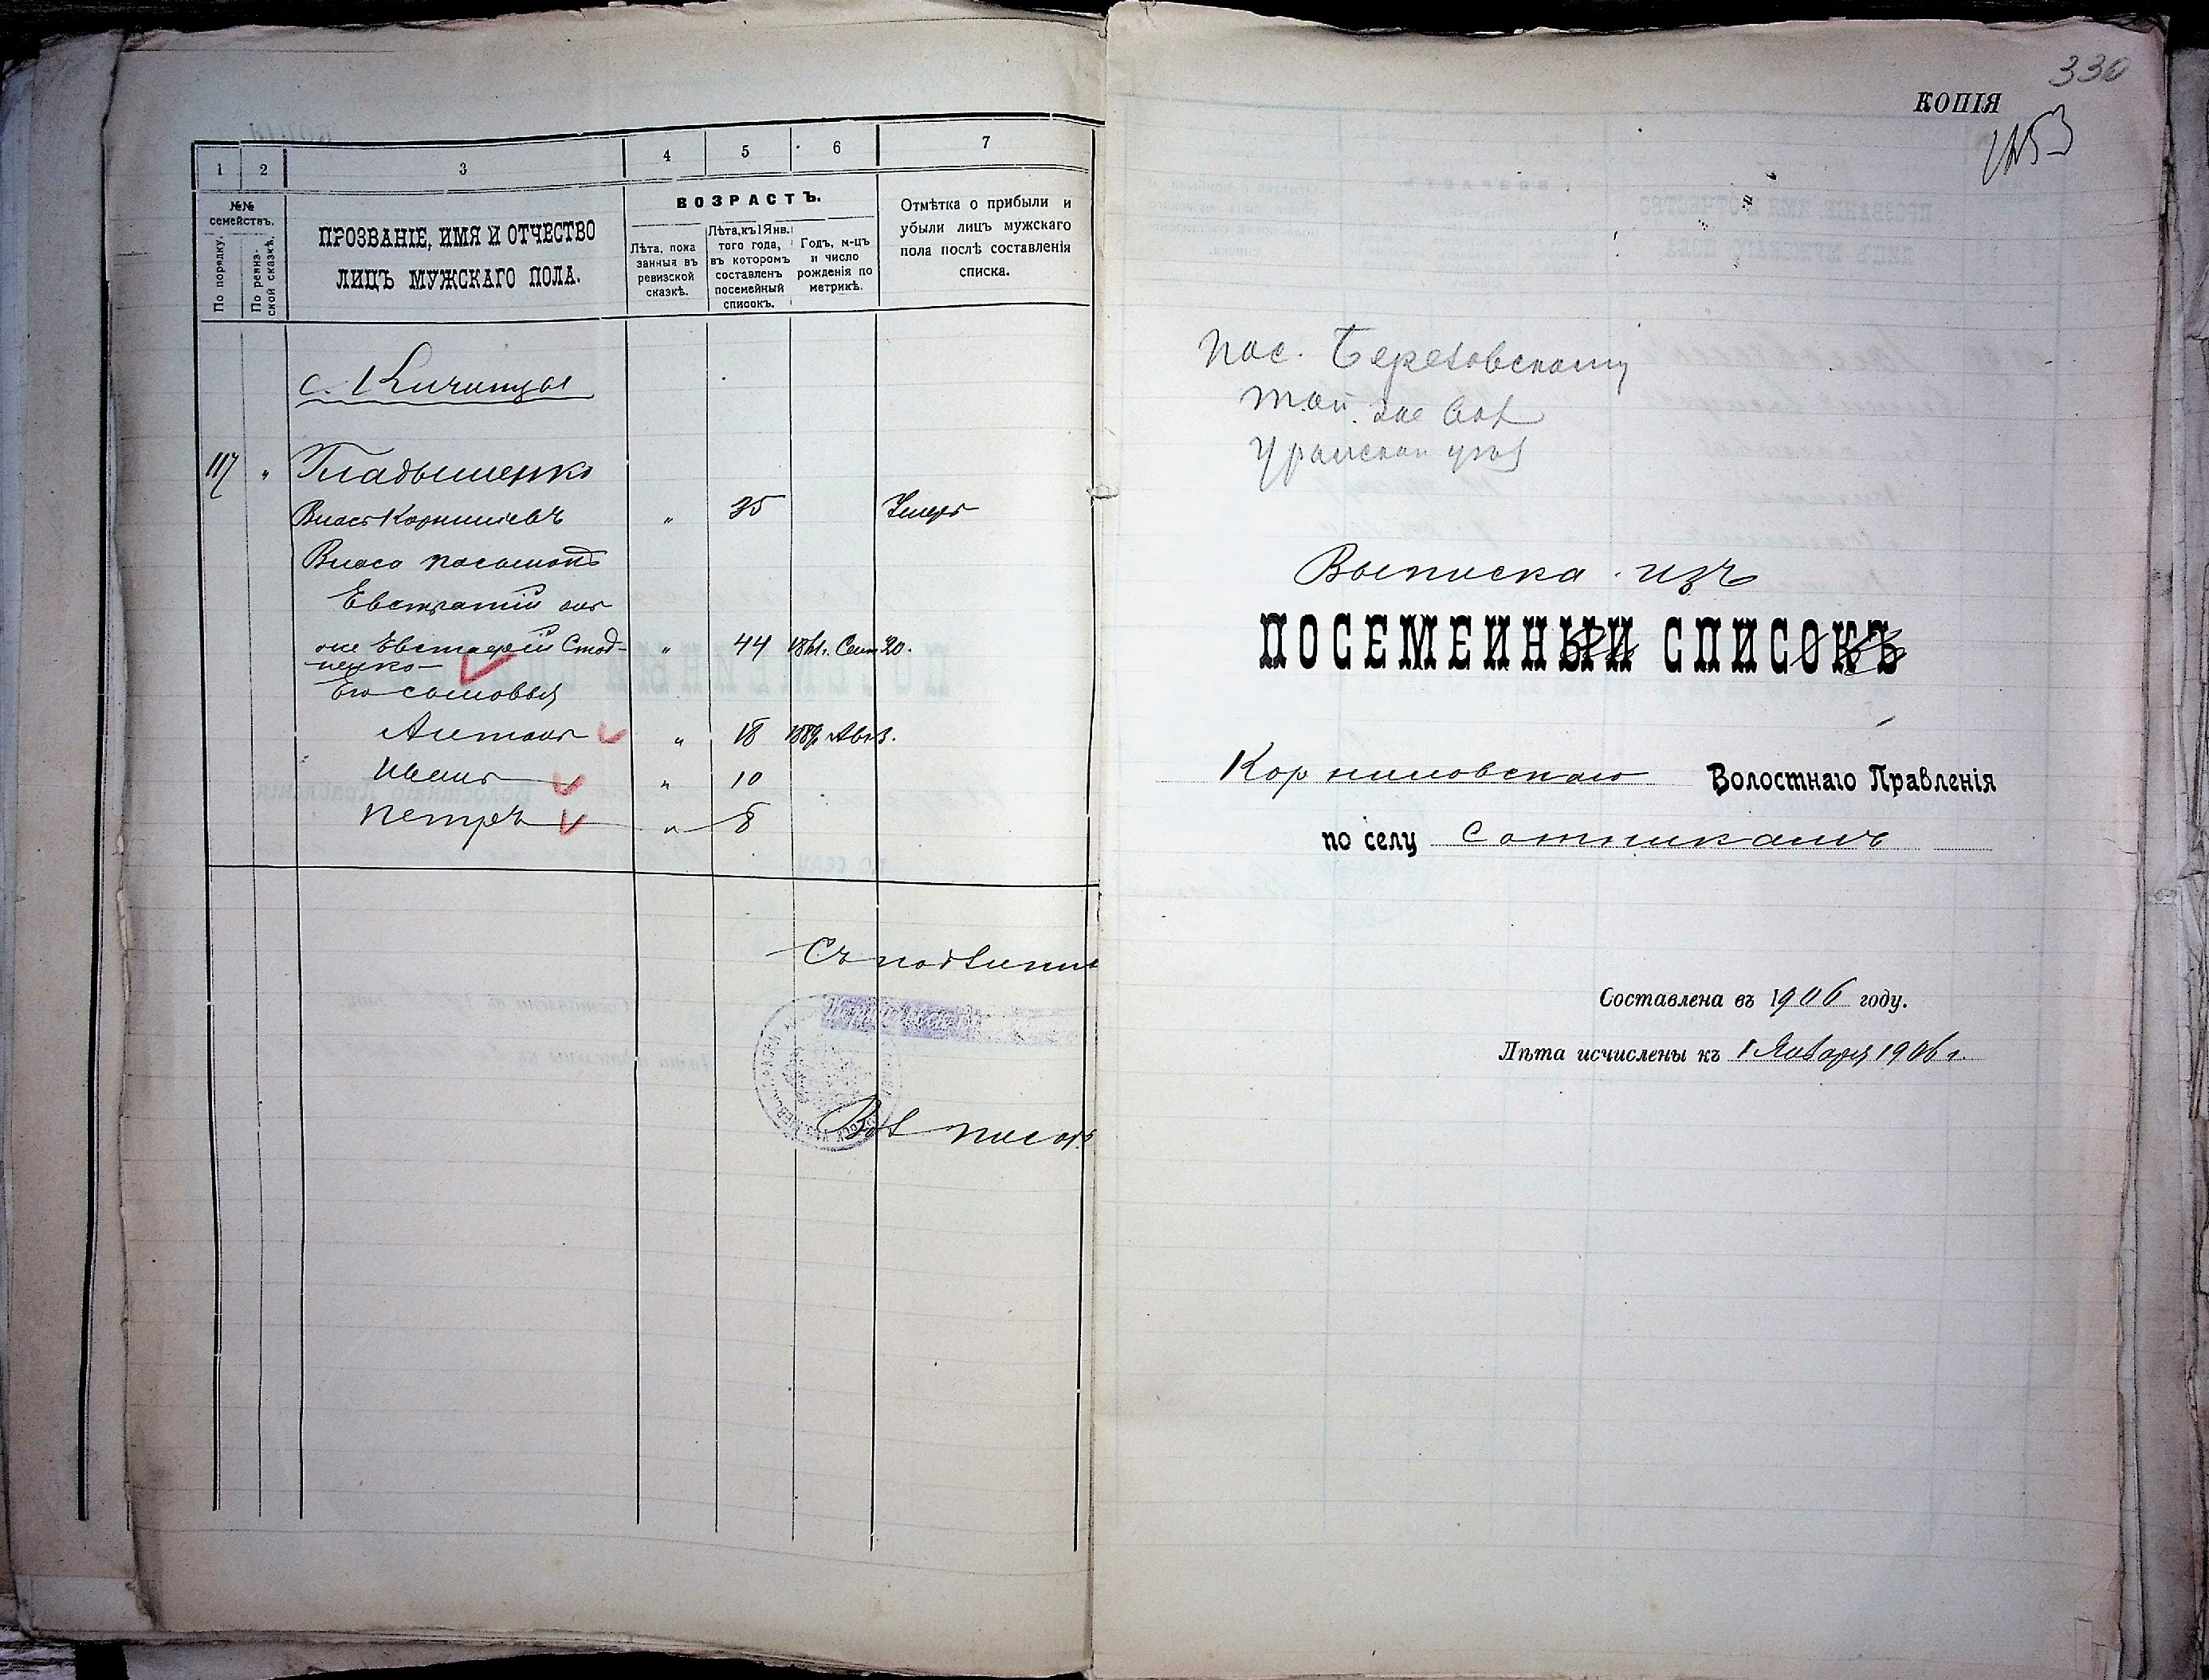 1 2 3 4 5 6 7
№№ семействъ.
По порядку.
По ревиз-
ской сказкѣ.
ПРОЗВАНІЕ, ИМЯ И ОТЧЕСТВО
ЛИЦЪ МУЖСКАГО ПОЛА.
ВОЗРАСТЪ.
Лѣта, пока
занныя въ
ревизской
сказкѣ.
Лѣта,къ 1 Янв.
того года,
въ которомъ
составленъ
посемейный
списокъ.
Годъ, м-цъ
и число
рожденія по
метрикѣ.
Отмѣтка о прибыли и
убыли лицъ мужскаго
пола послѣ составленія
списка.
с. Кичинцы
117 " Гладышенко
Власъ Корниліевъ " 35 Умеръ
Власа
Евстратій онъ
же Евстафій Стад-
ненко " 44 1861. Сент 20.
Его сыновья
Антонъ " 18 1887 Авг 3.
Иванъ " 10
Петръ " 8
Съ подлинны
Вол писарь
330
КОПІЯ
пос. Березовскому
Уральской
Выписка изъ
ПОСЕМЕЙНЫЙ СПИСОКЪ
Корниловскаго Волостнаго Правленія
по селу Сотникамъ
Составлена въ 1906 году.
Лѣта исчислены къ 1 Января 1906 г.